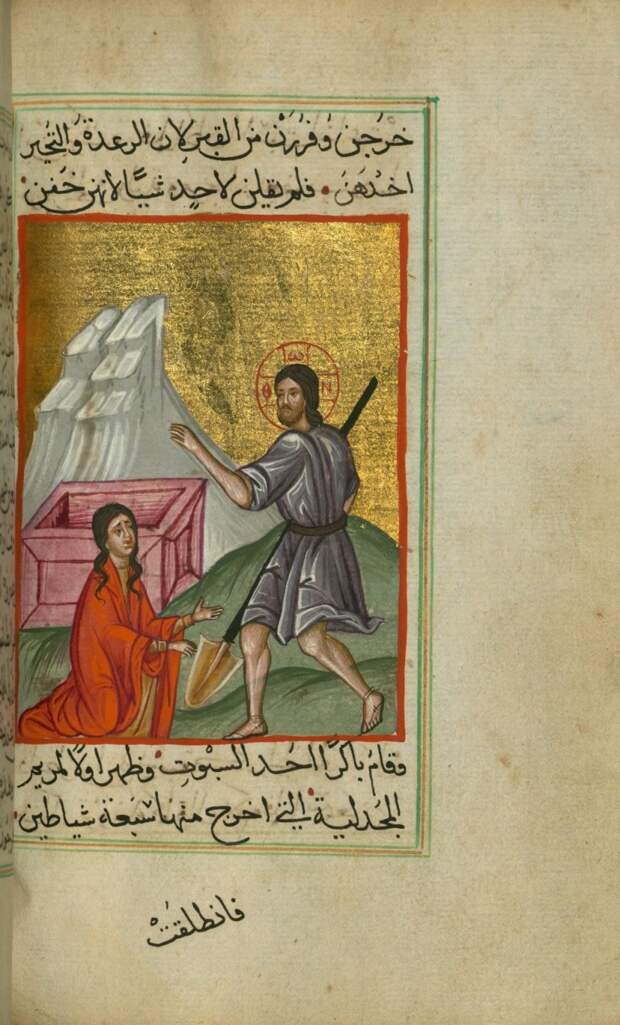 خرجن وفررن من القبر لان الرعدة والتحير
اخذهن • فلم يقلن لاحدٍ شيًا لانهن خفن •
ὁ ω Ν
وقام باكرًا احد السبوت • وظهر اولًا لمريم
المجدلية • التي اخرج منها سبعة شياطين •
فانطلقتْ